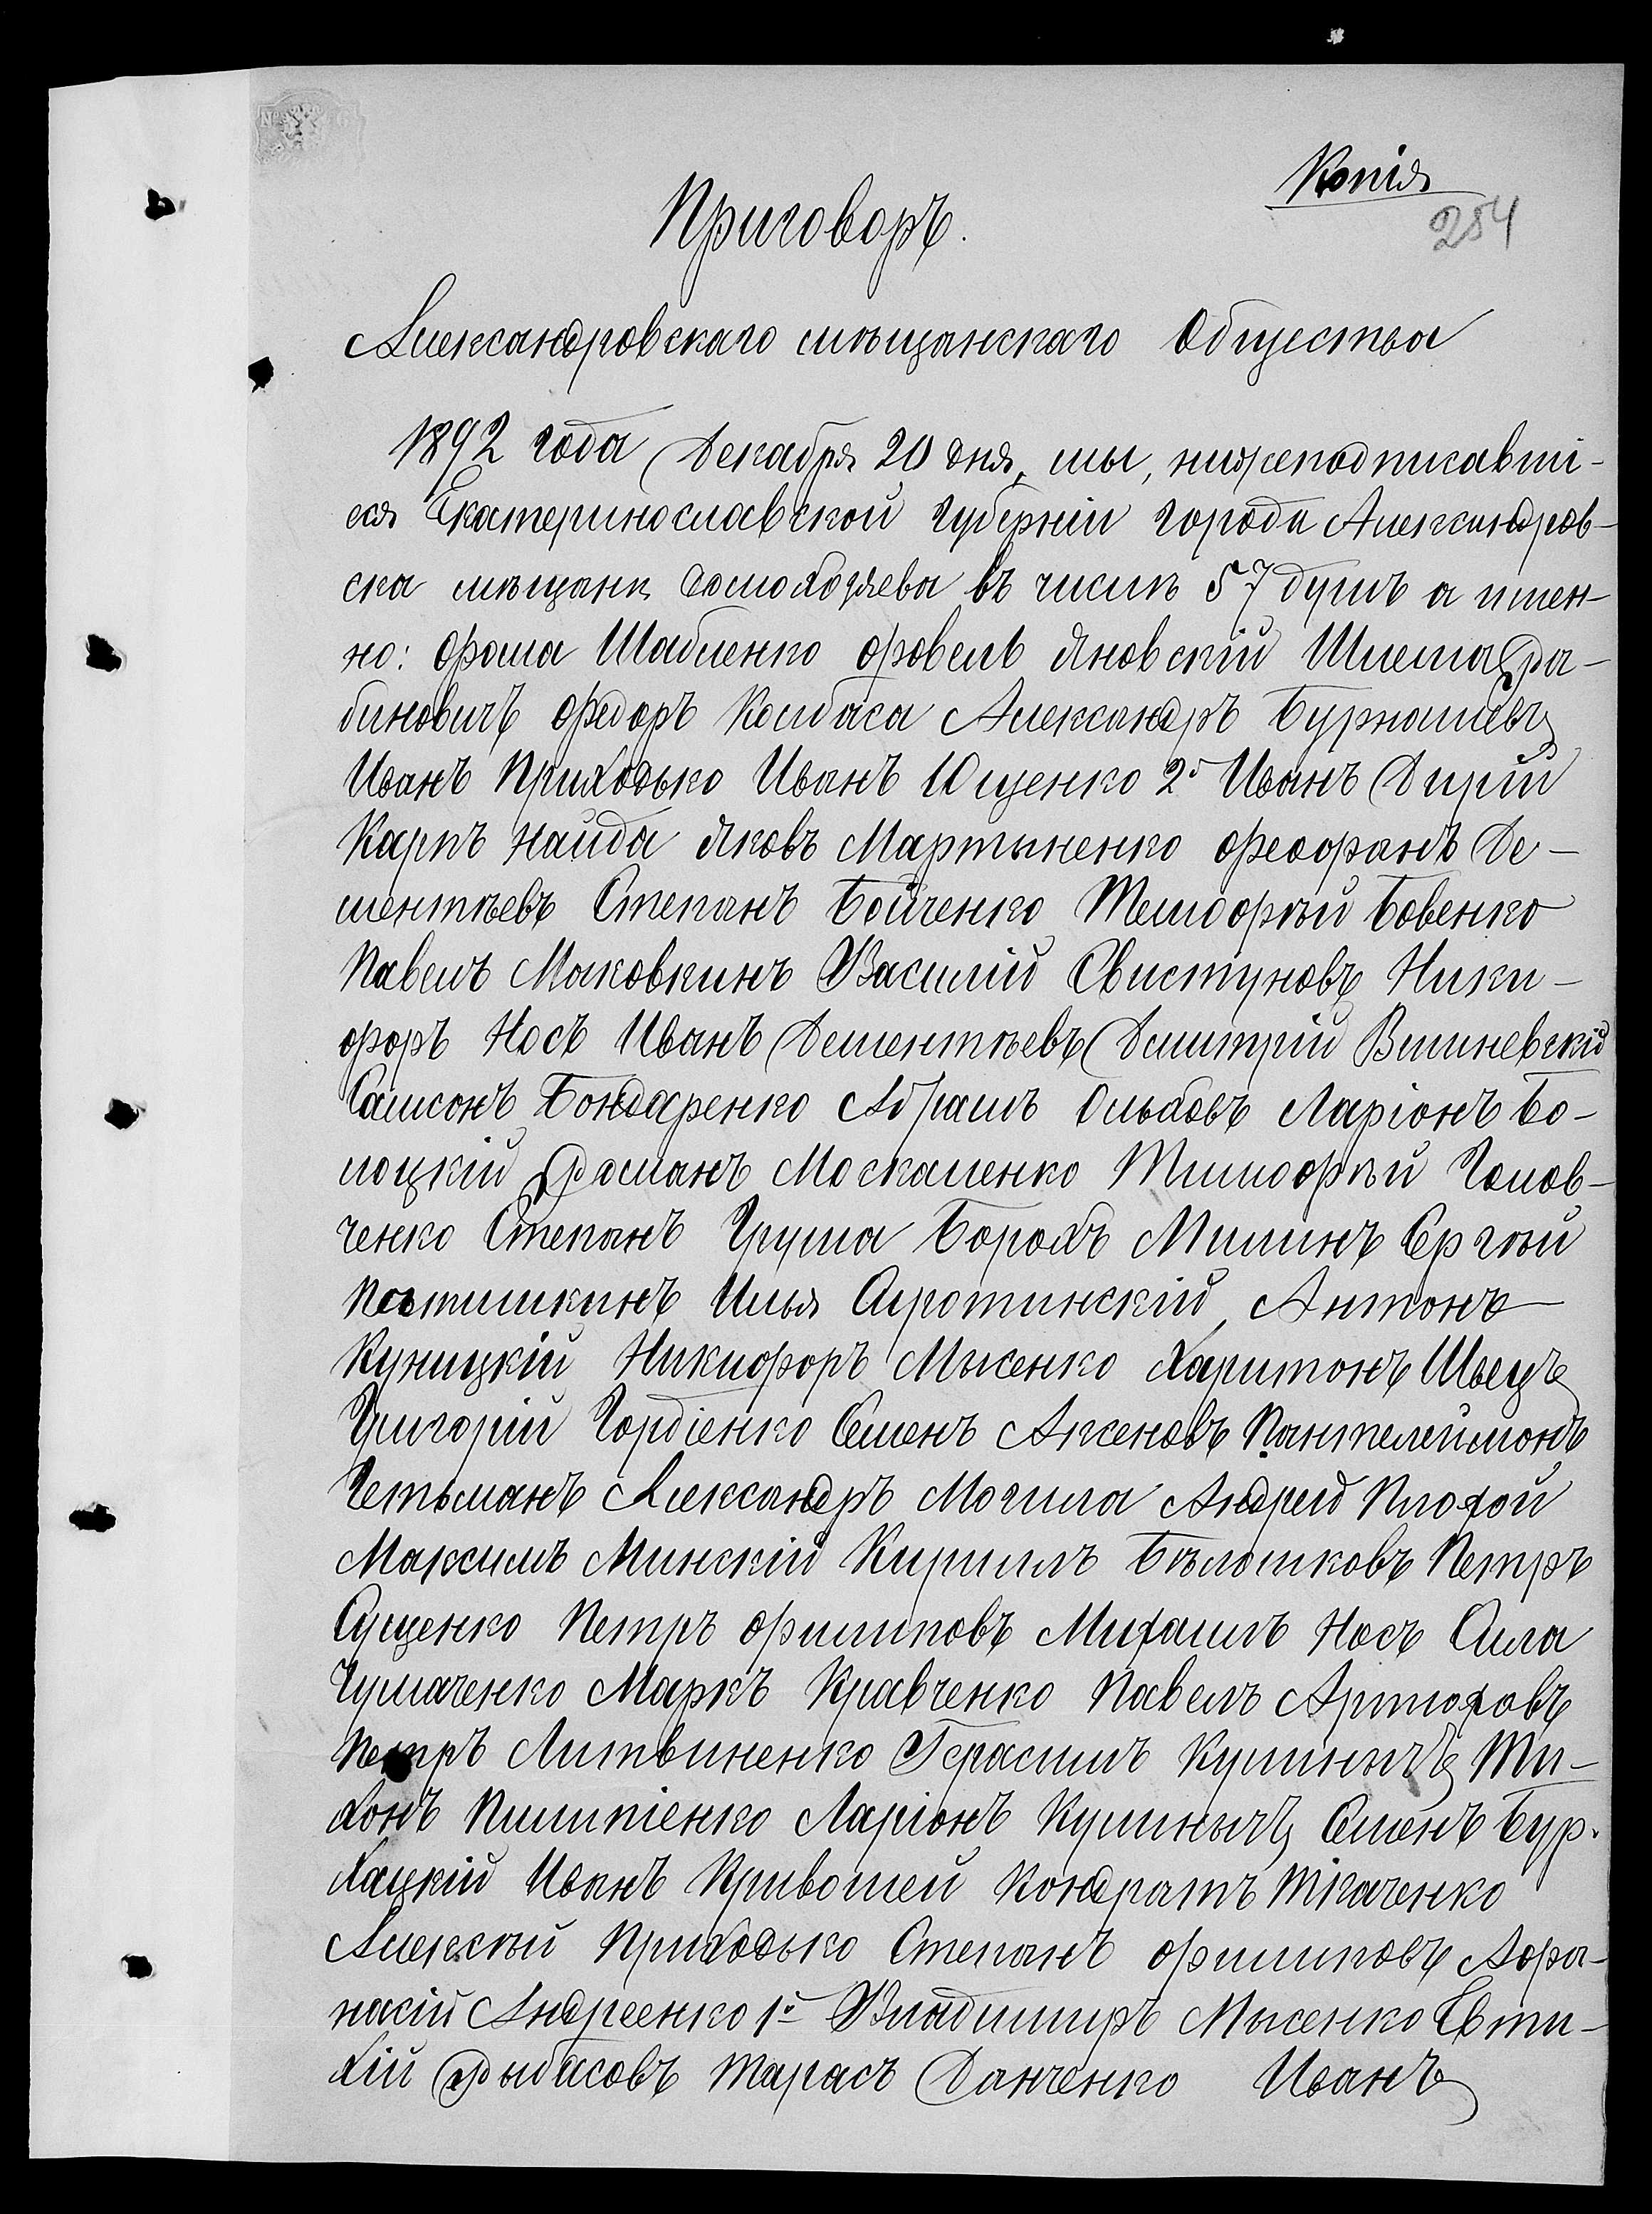 Копія
284
Приговоръ.
Александровскаго мѣщанскаго Общества
1892 года Декабря 20 дня, мы, нижеподписавші-
еся Екатеринославской губерніи города Александров-
ска мѣщане домохозяева въ числѣ 57 душъ а имен-
но: Фома Шабленко Фовелъ Яновскій Шлема Ра-
биновичъ Федоръ Колбаса Александръ Бурнашевъ
Иванъ Приходько Иванъ Ющенко 2й Иванъ Дирій
Карпъ Найда Яковъ Мартыненко Феофанъ Де-
ментѣевъ Степанъ Бойченко Темофѣй Бовенко
Павелъ Маковкинъ Василій Свистуновъ Ники-
форъ Носъ Иванъ Дементѣевъ Дмитрій Вишневскій
Самсонъ Бондаренко Абрамъ Ольховъ Ларіонъ Бо-
лоцкій Романъ Москаленко ТимофѣйГолов-
ченко Степанъ Груша Борохъ Милинъ Сергѣй
Пятишкинъ Илья Сиротинскій, Антонъ
Куницкій Никифоръ Мысенко Харитонъ Швецъ
Григорій Гордіенко Семенъ Аксеновъ Пантелеймонъ
Гетьманъ Александръ Могила Андрей Плохой
Максимъ Минскій Кирилъ Бѣлошковъ Петръ
Сущенко Петръ Филиповъ Михаилъ Носъ Сила
Чумаченко Маркъ Кравченко Павелъ Артюховъ
Петръ Литвиненко Герасимъ Кулиничъ Ти-
хонъ Пилипіенко Ларіонъ Кулинычъ Семенъ Бур-
хацкій Иванъ Кривошей Кондратъ Ткаченко
Алексѣй Приходько Степанъ Филиповъ Афа-
насій Андреенко 1й Владимиръ Мысенко Евти-
хій Рыбасовъ Тарасъ Данченко Иванъ